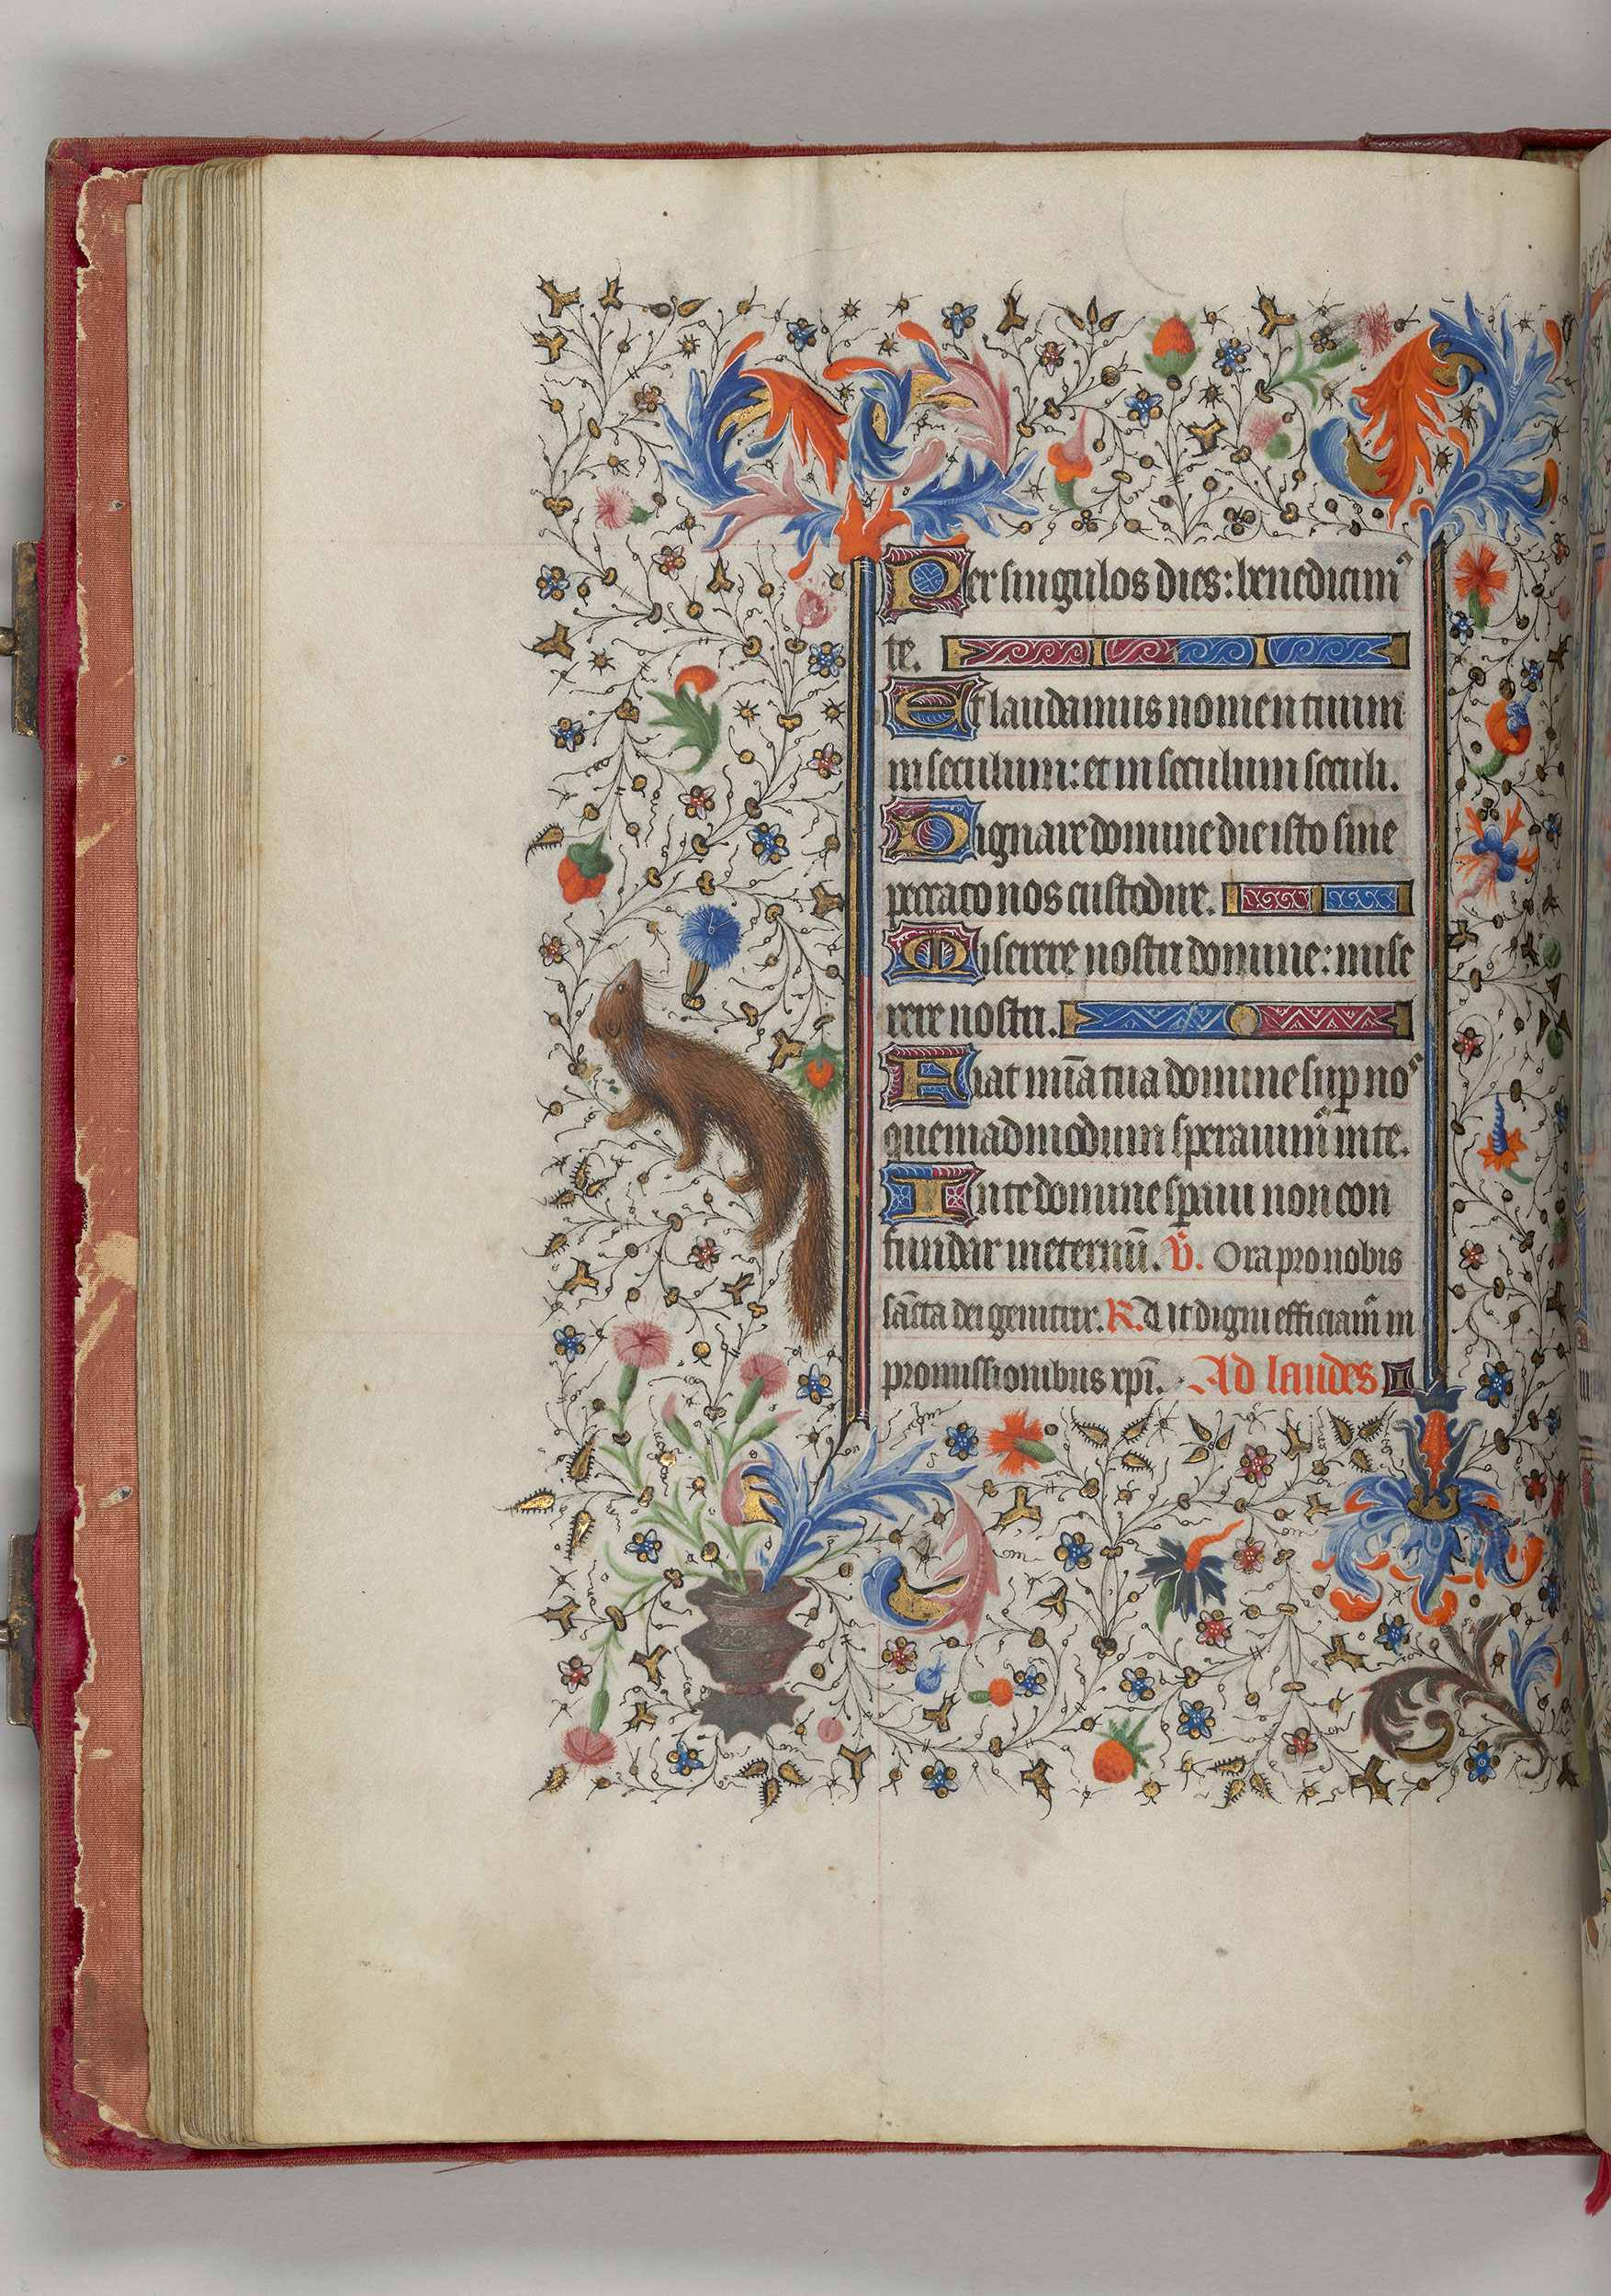 Per singulos dies: benedicim᷒
te.
Et laudamus nomen tuum
in seculum: et in seculum seculi.
Dignare domine die isto sine
peccato nos custodire.
Miserere nostri domine: mise
rere nostri.
Fiat mīa tua domine sup no᷒
quemadmodum sperauim᷒ in te.
In te domine speraui non con
fundar in eternū. V̄. Ora pro nobis
sācta dei genitrix. R. Ut digni efficiam᷒ in
promissionibus xp̄i. Ad laudes